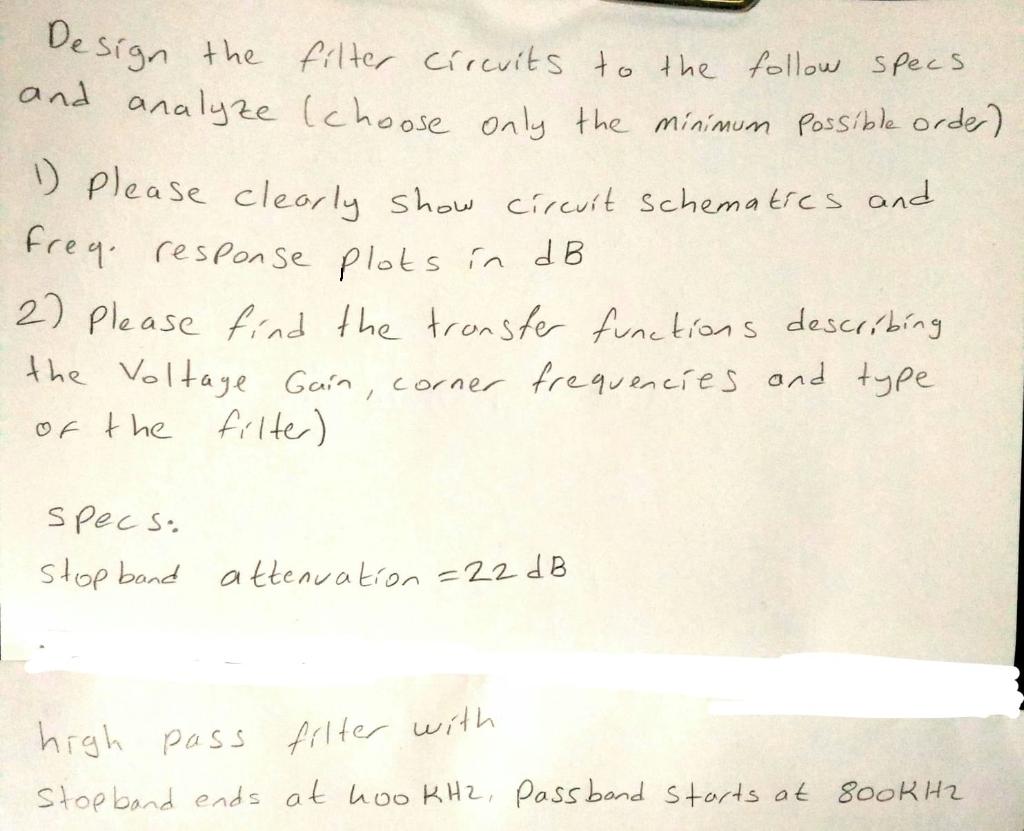 Design the filter circuits to the follow specs
and analyze (choose only the minimum possible order)
1) Please clearly show circuit schematics and
freq. response plots in dB
2) Please find the transfer functions describing
the Voltage Gain, corner frequencies and type
of the filter)
Specs:
Stop band attenuation = 22 dB
high pass filter with
Stopband ends at 400 KHz, Passband Starts at 800KHz